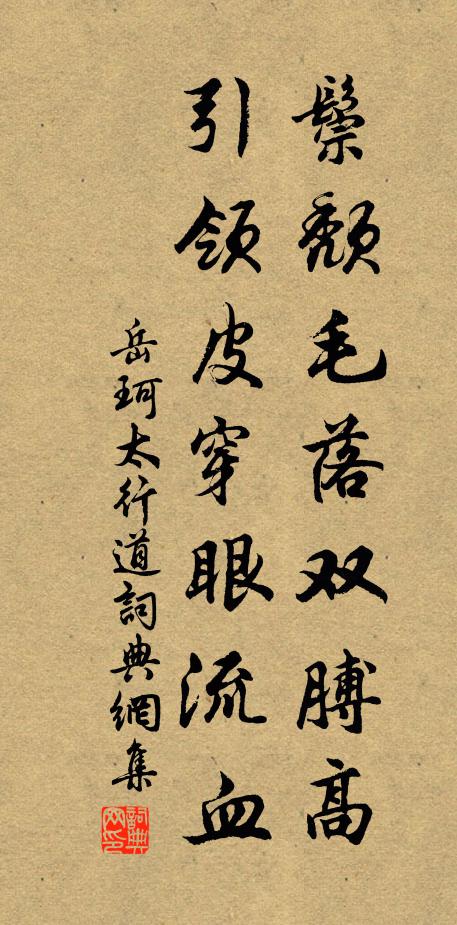 鬃颓毛落双膊高
引领皮穿眼流血
岳珂太行道詞典網集
詞典網印